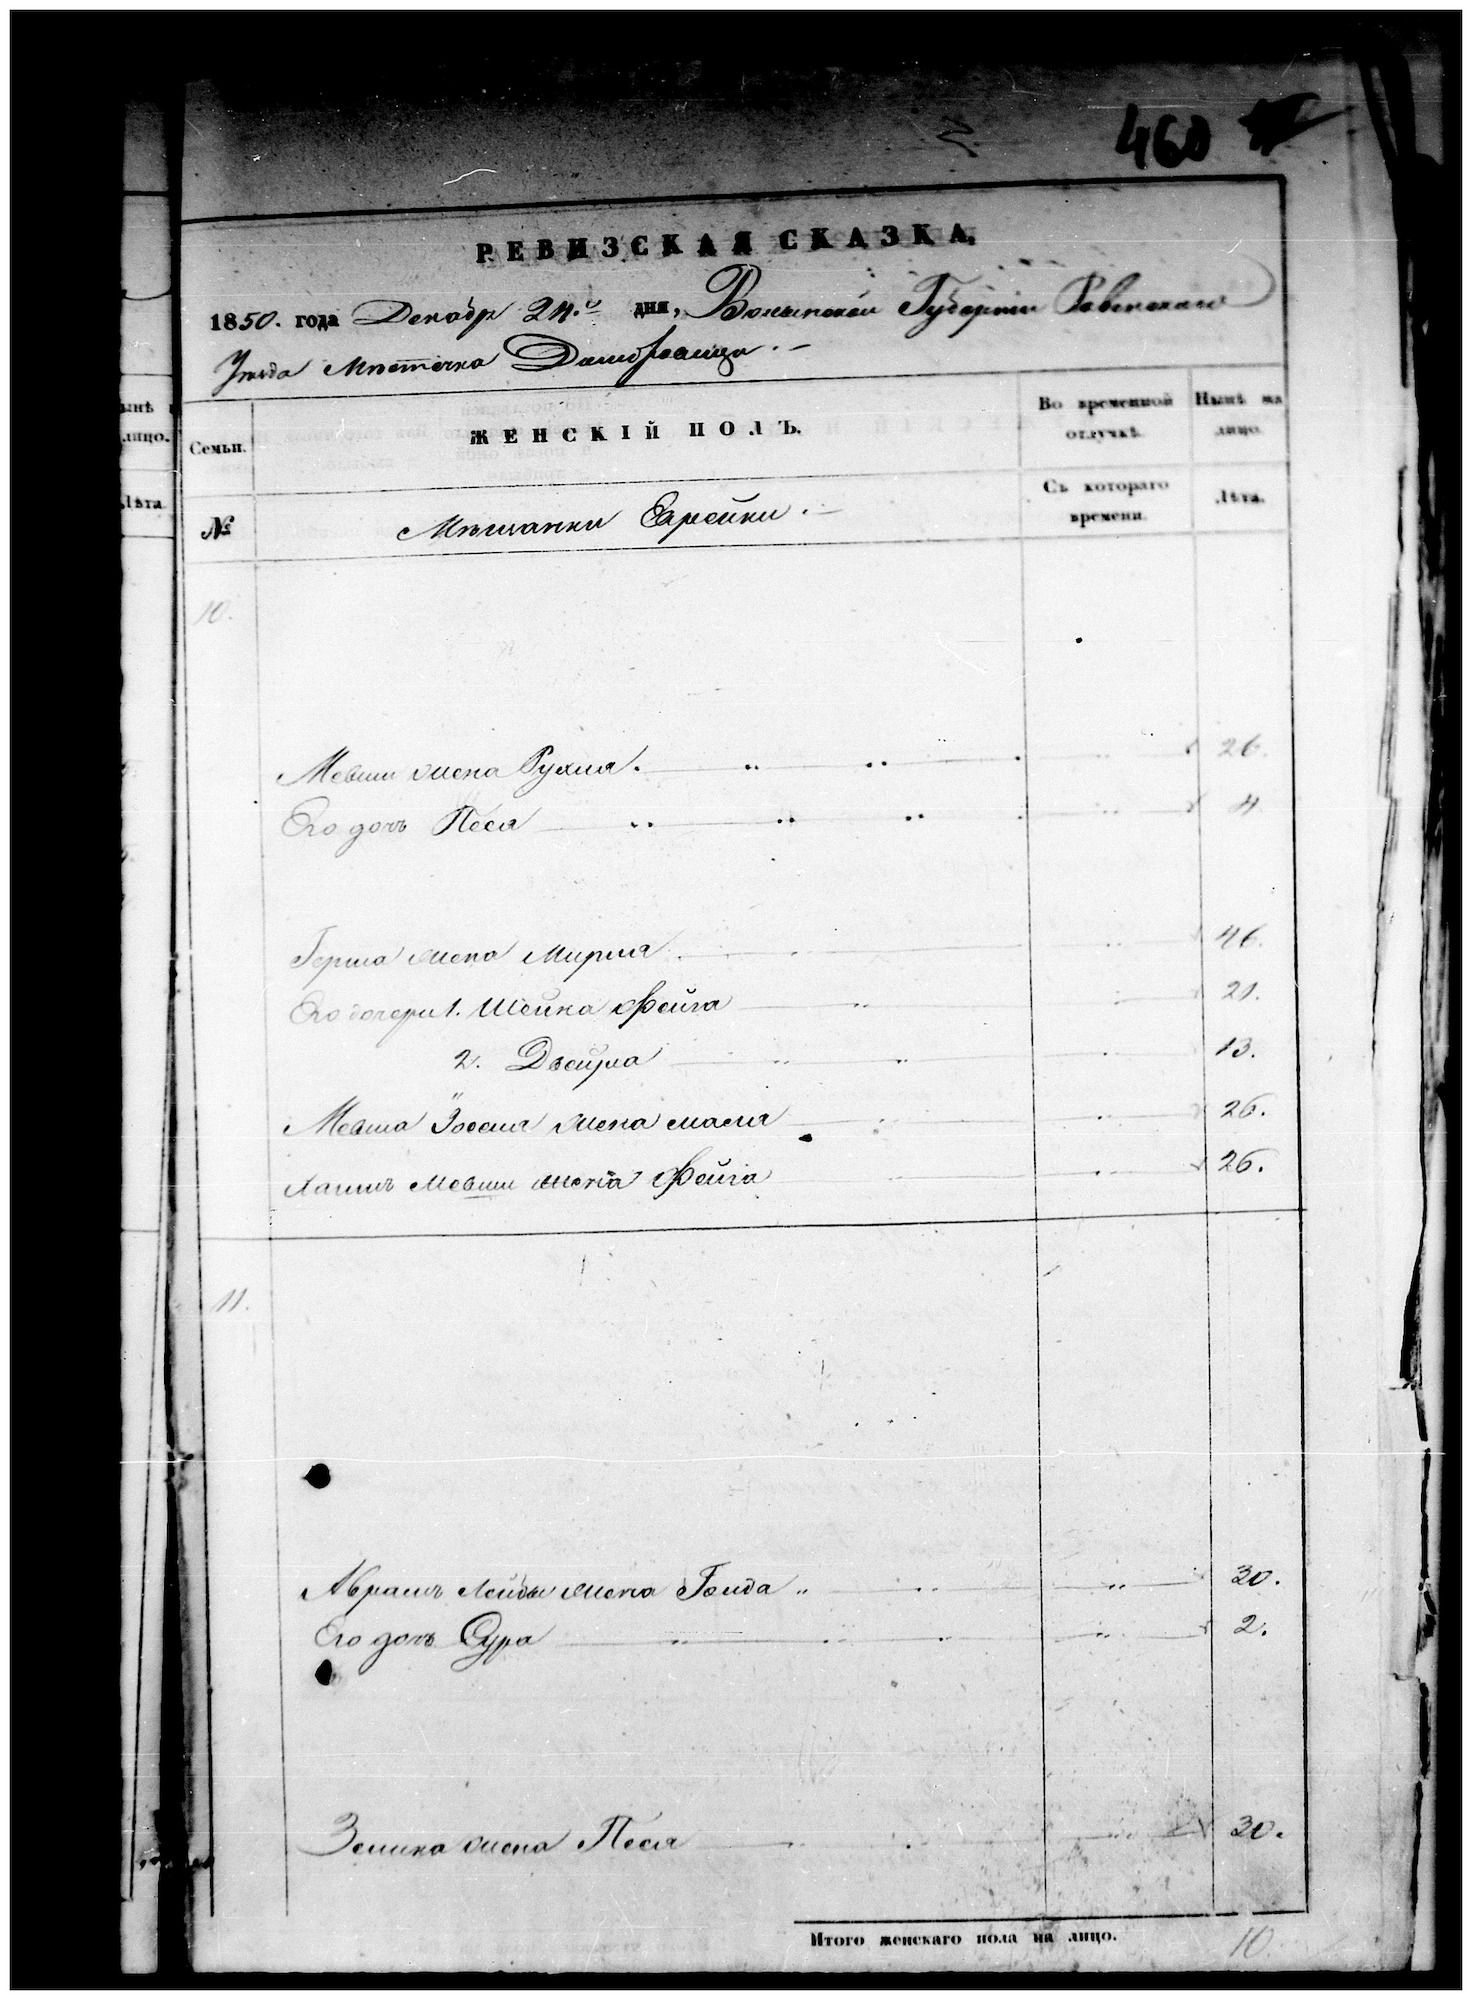 460
РЕВИЗСКАЯ СКАЗКА,
1850. года Декабр 24.го дня, Волынской Губернии Ровенского
Уѣзда Мѣстечка Домбровица
ынѣ
лицо.
Лѣта
Семьи.
ЖЕНСКІЙ ПОЛЪ.
Во временной отлучкѣ.
Нынѣ на лицо.
№
Мѣщанки Еврейки.
Съ котораго времени.
Лѣта.
10.
Мевши жена Рухля. 26.
Его дочь Песя 4
Герша жена Мирля 46.
Его дочери 1. Шейна Фейга 21.
2. Двейра 13.
Мевша Іосея жена маля 26.
Мевши жена Фейга 26.
11.
Абрамъ Лейбы жена Голда 30.
Его дочь Сура 2.
Зелика жена Песя 30.
Итого женскаго пола на лицо. 10.